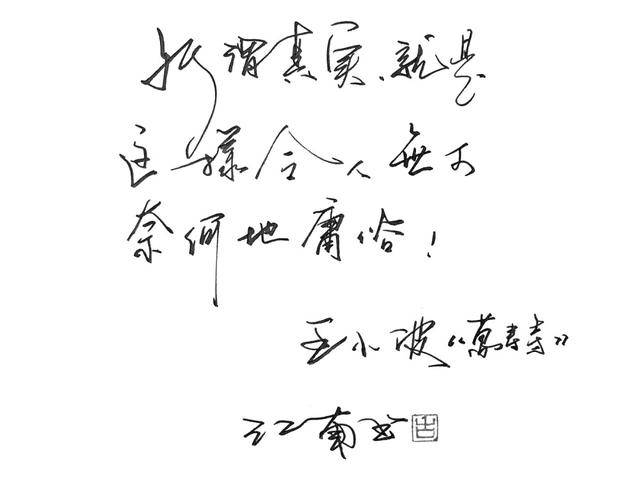 所谓真实,就是
这样令人無可
奈何地庸俗!
王小波《萬寿寺》
江南书